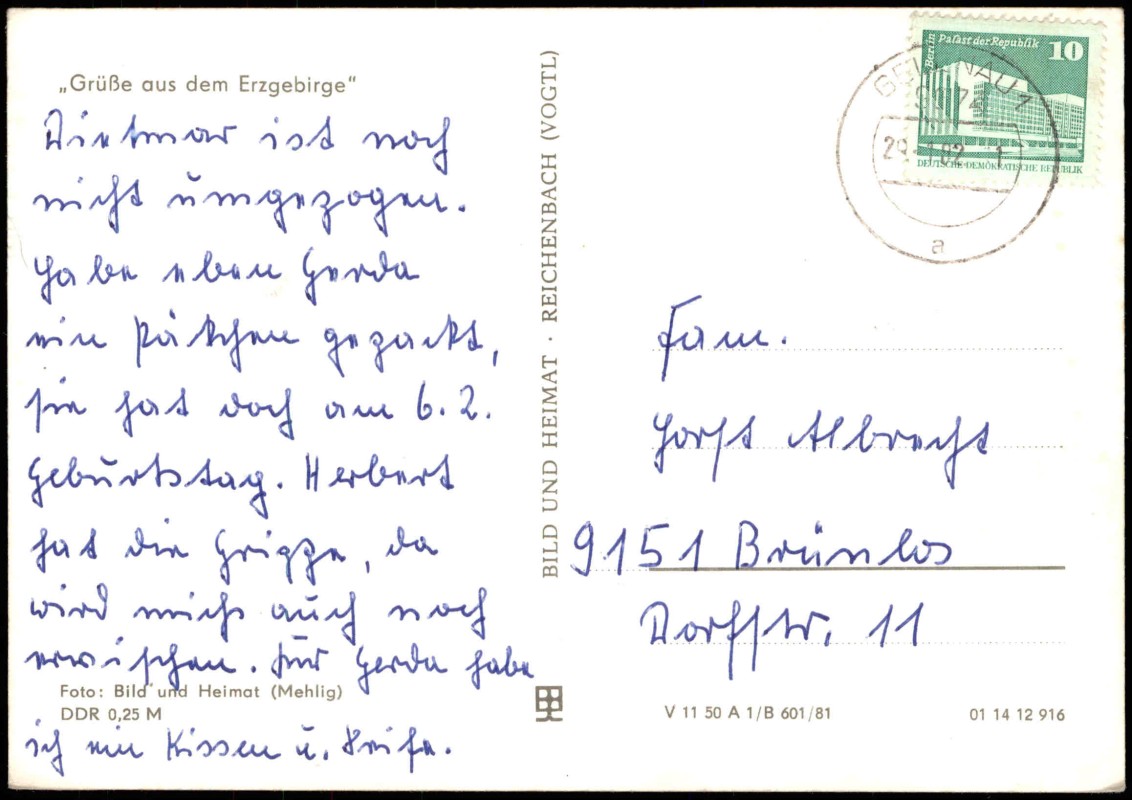 „Grüße aus dem Erzgebirge"
Dietmar ist noch
nicht umgezogen.
Habe eben Gerda
ein Päkchen gepackt,
sie hat doch am 6.2.
Geburtstag. Herbert
hat die Grippe, da
wird michs auch noch
erwischen. Für Gerda habe
ich ein Kissen u. Seife.
Foto: Bild und Heimat (Mehlig)
DDR 0,25 M
BILD UND HEIMAT · REICHENBACH (VOGTL)
Berlin
Palast der Republik
10
DEUTSCHE DEMOKRATISCHE REPUBLIK
a
Fam.
Horst Albrecht
9151 Brünlos
Dorfstr. 11
V 11 50 A 1/B 601/81
01 14 12 916